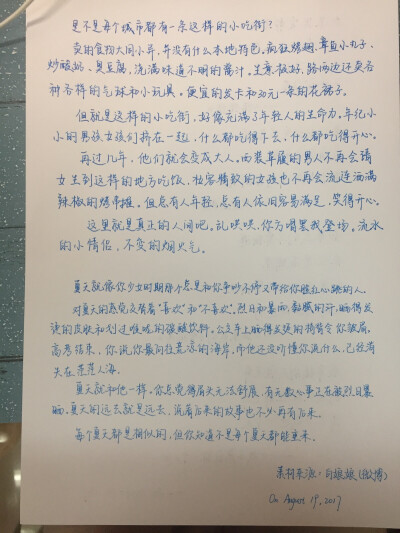 是不是每个城市都有一条这样的小吃街？
卖的食物大同小异，并没有什么本地特色。疯狂烤翅、章鱼小丸子、
炒酸奶、臭豆腐，浇满味道不明的酱汁。生意极好，路两边还卖各
种各样的气球和小玩具。便宜的发卡和30元一条的花裙子。
但就是这样的小吃街，好像充满了年轻人的生命力。年纪小
小的男孩女孩们挤在一起，什么都吃得下去，什么都吃得开心。
再过几年，他们就会变成大人。西装革履的男人不再会请
女生到这样的地方吃饭，妆容精致的女孩也不再会流连洒满
辣椒的烤串摊。但总有人年轻，总有人依旧容易满足，笑得开心。
这里就是真正的人间吧。乱哄哄，你方唱罢我登场，流水
的小情侣，不变的烟火气。
夏天就像你少女时期那个总是和你争吵不停又带给你脸红心跳的人。
对夏天的感觉交替着“喜欢”和“不喜欢”。烈日和暴雨，黏腻的汗，晒得发
烫的皮肤和划过喉咙的碳酸饮料。公交车上晒得发烫的椅背令你皱眉。
高考结束，你说你最向往荒凉的海岸，而他还没听懂你说什么，已经消
失在茫茫人海。
夏天就和他一样。你总觉得眉头无法舒展，有无数心事正在被烈日暴
晒。夏天的远去就是远去，说着后来的故事也不必再有后来。
每个夏天都是相似的，但你知道不是每个夏天都能重来。
素材来源：（微博）
On August 19, 2017